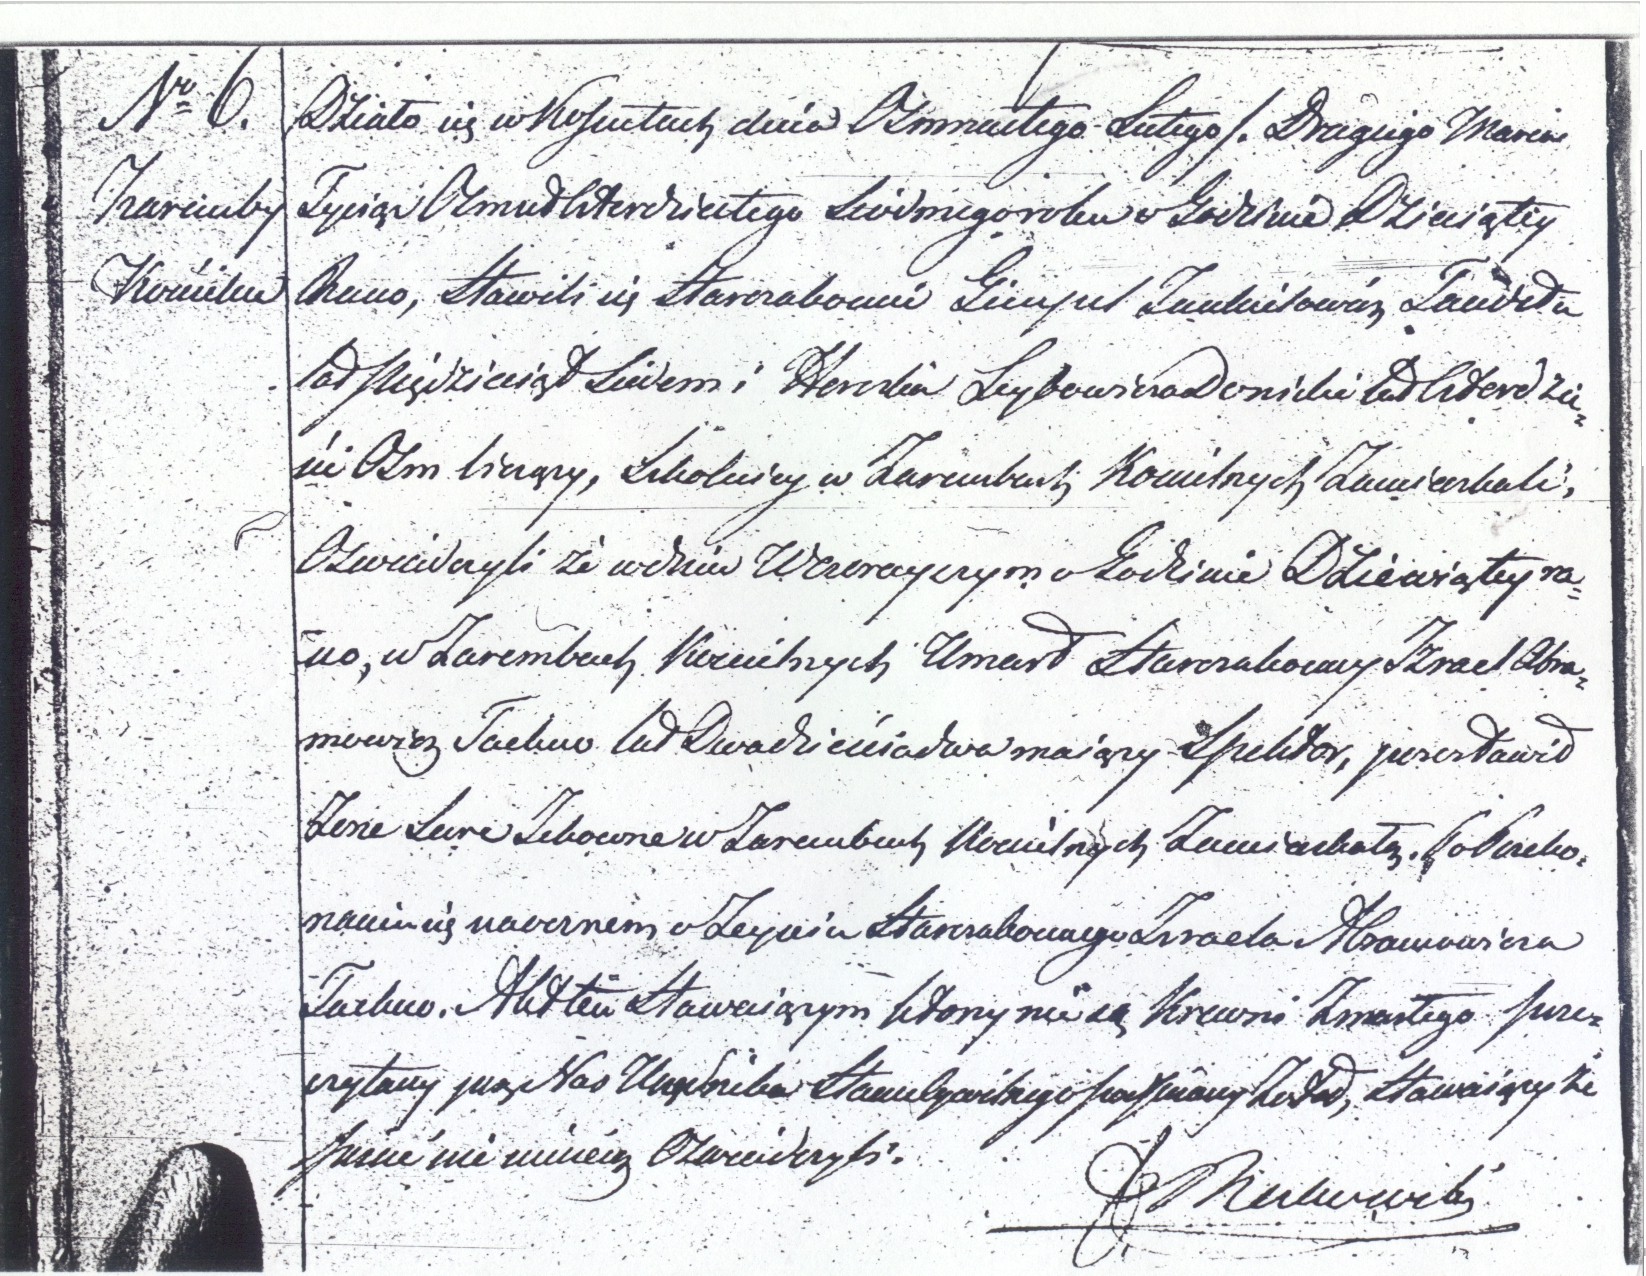 Nro 6.
Zaremby
Kościelne
Działo się w Kossutach dnia Osmnastego Lutego /. Drugiego Marca
Tysiąc Osmset Czterdziestego Siódmego roku o Godzinie Dziesiątey
Rano, Stawili się Starozakonni Gimpel Tauleda
lat pięćdziesiąt Siedem i Herszka Leybowicza Donicki lat Czterdzie=
ści Ośm liczący, Szkolnicy w Zarembach Kościelnych Zamieszkali,
Oświadczyli że w dniu Wczorayszym o Godzinie Dziewiątey ra=
no, w Zarembach Kościelnych Umarł Starozakonny Izrael Abra=
mowicz Tachno lat Dwadzieścia dwa maiący Spektor, pozostawił
Żonę Surę Ickowne w Zarembach Kościelnych Zamieszkałą. Po Przeko=
naniu się naocznem o Zeyściu Starozakonnego Izraela Abramowicza
Tachno. Akt ten Stawaiącym którzy nie są Krewni Zmarłego prze=
czytany przez Nas Urzędnika Stanu Cywilnego podpisany Został, Stawaiący że
pisać nie umieią Oświadczyli.